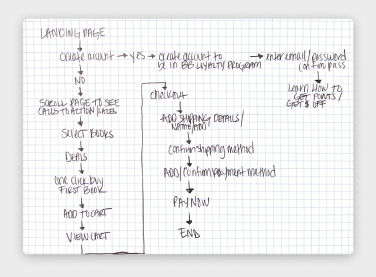 LANDING PAGE
create account → yes → create account to be in BB LOYALTY PROGRAM → enter email/password confirm pass
Learn HOW TO
GET POINTS/
GET $ OFF
NO
SCROLL PAGE TO SEE
CALLS TO ACTION/SALES
SELECT BOOKS
DEALS
one click buy
FIRST BOOK
ADD TO CART
VIEW CART
checkout
ADD SHIPPING DETAILS/
NAME/ADD
confirm shipping method
ADD/confirm payment method
PAY NOW
END